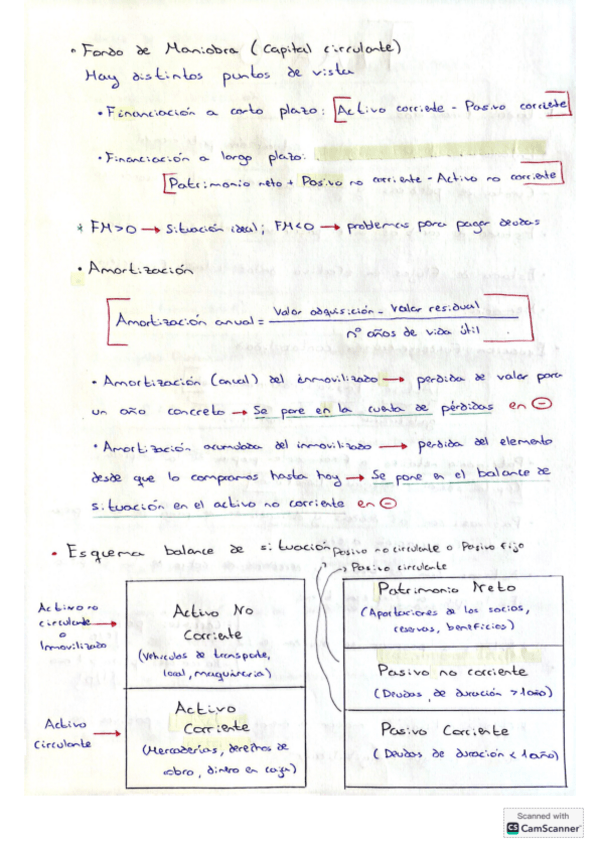 • Fondo de Maniobra (Capital circulante)
Hay distintos puntos de vista
• Financiación a corto plazo: [Activo corriente - Pasivo corriente]
• Financiación a largo plazo:
[Patrimonio neto + Pasivo no corriente - Activo no corriente]
* FM>0 → Situación ideal; FM<0 → problemas para pagar deudas
• Amortización
[Amortización anual = Valor adquisición - Valor residual
nº años de vida útil]
• Amortización (anual) del inmovilizado → perdida de valor para
un año concreto → Se pone en la cuenta de pérdidas en ⊖
• Amortización acumulada del inmovilizado → perdida del elemento
desde que lo compramos hasta hoy → Se pone en el balance de
situación en el activo no corriente en ⊖
• Esquema balance de situación
Pasivo no circulante o Pasivo fijo
→ Pasivo circulante
Activo no
circulante →
o
Inmovilizado
Activo No
Corriente
(Vehículos de transporte,
local, maquinaria)
Activo →
Circulante
Activo
Corriente
(Mercaderías, derechos de
cobro, dinero en caja)
Patrimonio Neto
(Aportaciones de los socios,
reservas, beneficios)
Pasivo no corriente
(Deudas de duración >1año)
Pasivo Corriente
(Deudas de duración < 1año)
Scanned with
CS CamScanner